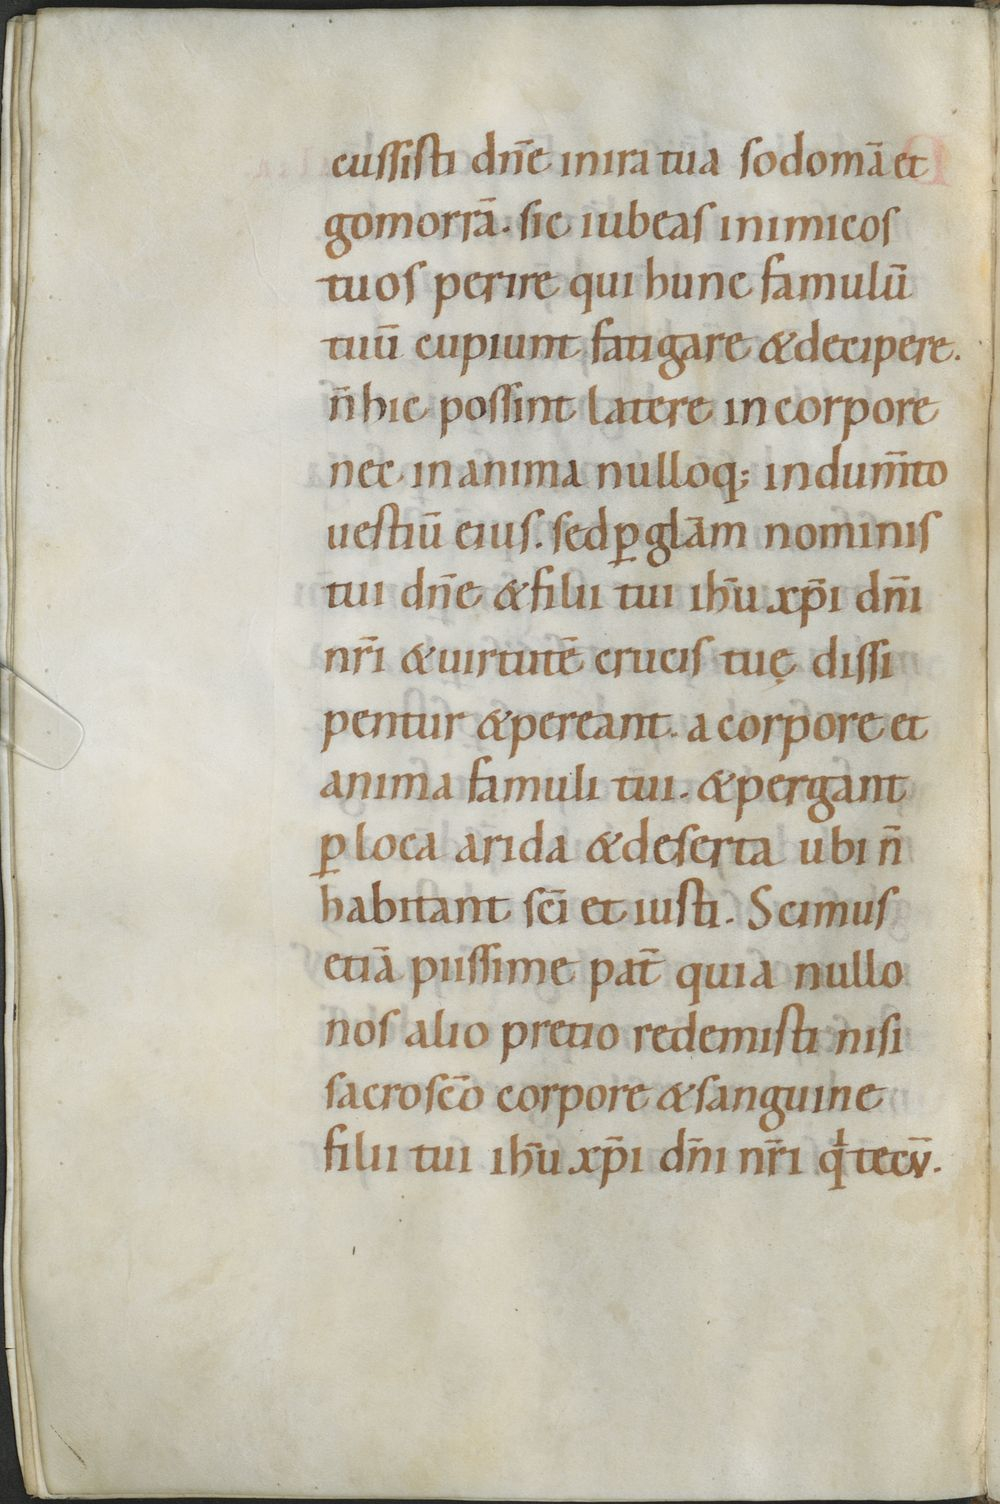 cussisti dn̄e in ira tua sodomā et
gomorrā. sic iubeas inimicos
tuos perire qui hunc famulū
tuū cupiunt fatigare & decipere.
n̄ hic possint latere in corpore
nec in anima nulloq; indum̄to
uestiū eius. sed ꝑ glām nominis
tui dn̄e & filii tui ih̄u xp̄i dn̄i
nr̄i & uirtutē crucis tuę dissi
pentur & pereant. a corpore et
anima famuli tui. & pergant
ꝑ loca arida & deserta ubi n̄
habitant sc̄i et iusti. Scimus
etiā piissime pat̄ quia nullo
nos alio pretio redemisti nisi
sacrosc̄o corpore & sanguine
filii tui ih̄u xp̄i dn̄i nr̄i qͥ tecū.